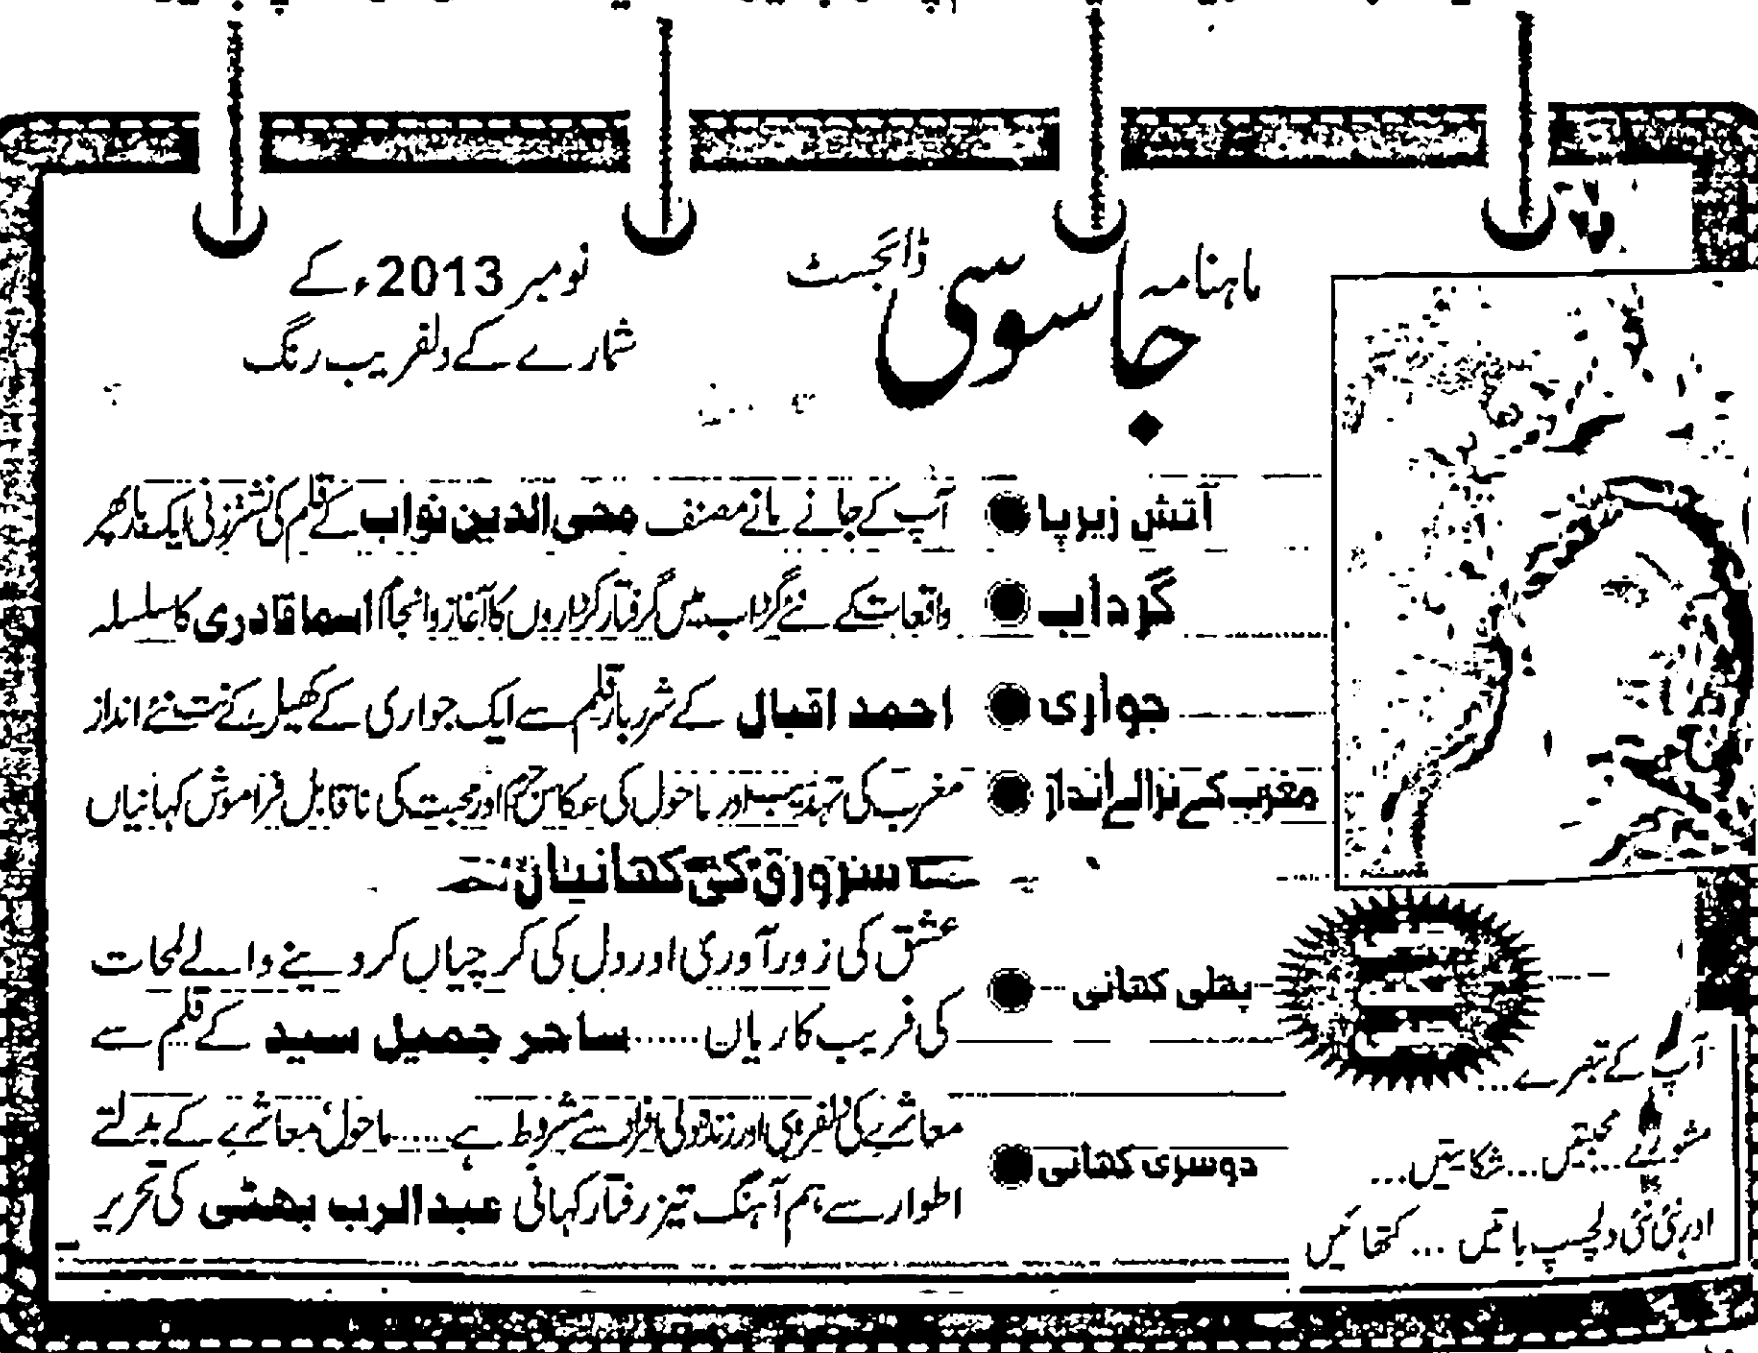 ماہنامہ جاسوسی ڈائجسٹ
نومبر 2013ء کے
شمارے کے دلفریب رنگ
آتش زیر پا ● آپ کے جانے مانے مصنف محی الدین نواب کے قلم کی نشتر زنی ایک بار پھر
گرداب ● واقعات کے نئے گرداب میں گرفتار کرداروں کا آغاز و انجام اسما قادری کا سلسلہ
جواری ● احمد اقبال کے شرربار قلم سے ایک جواری کے کھیل کے نت نئے انداز
مغرب کے نرالے انداز ● مغرب کی تہذیب اور ماحول کی عکاس جرم اور محبت کی ناقابل فراموش کہانیاں
سرورق کی کہانیاں
پہلی کہانی ● عشق کی زور آوری اور دل کی کرچیاں کر دینے والے لمحات
کی فریب کاریاں...... ساحر جمیل سید کے قلم سے
دوسری کہانی ● معاشرے کی اور زندگی سے مشروط ہے...... ماحول، معاشرے کے بدلتے
اطوار سے ہم آہنگ تیز رفتار کہانی عبدالرب بھٹی کی تحریر
آپ کے تبصرے...
مشورے... محبتیں... شکایتیں...
اور نئی نئی دلچسپ باتیں... کتھائیں